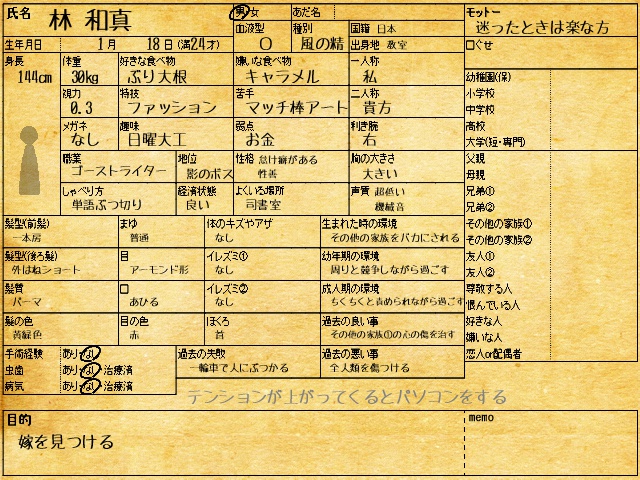 氏名 林 和真 男/女 あだ名 モットー
血液型 O 種別 風の精 国籍 日本 迷ったときは楽な方
生年月日 1月 18日 (満24才) 出身地 教室 口ぐせ
身長 144cm 体重 30kg 好きな食べ物 ぶり大根 嫌いな食べ物 キャラメル 一人称 私
視力 0.3 特技 ファッション 苦手 マッチ棒アート 二人称 貴方
メガネ なし 趣味 日曜大工 弱点 お金 利き腕 右
職業 ゴーストライター 地位 影のボス 性格 怠け癖がある 性善 胸の大きさ 大きい
しゃべり方 単語ぶつ切り 経済状態 良い よくいる場所 司書室 声質 超低い 機械音
幼稚園(保)
小学校
中学校
高校
大学(短・専門)
父親
母親
兄弟①
兄弟②
その他の家族①
その他の家族②
友人①
友人②
尊敬する人
恨んでいる人
好きな人
嫌いな人
恋人or配偶者
髪型(前髪) 一本房 まゆ 普通 体のキズやアザ なし 生まれた時の環境 その他の家族をバカにされる
髪型(後ろ髪) 外はねショート 目 アーモンド形 イレズミ① なし 幼年期の環境 周りと競争しながら過ごす
髪質 パーマ 口 あひる イレズミ② なし 成人期の環境 ちくちくと責められながら過ごす
髪の色 黄緑色 目の色 赤 ほくろ 首 過去の良い事 その他の家族①の心の傷を治す
手術経験 あり・なし 過去の失敗 一輪車で人にぶつかる 過去の悪い事 全人類を傷つける
虫歯 あり・なし・治療済
病気 あり・なし・治療済
テンションが上がってくるとパソコンをする
目的 memo
嫁を見つける